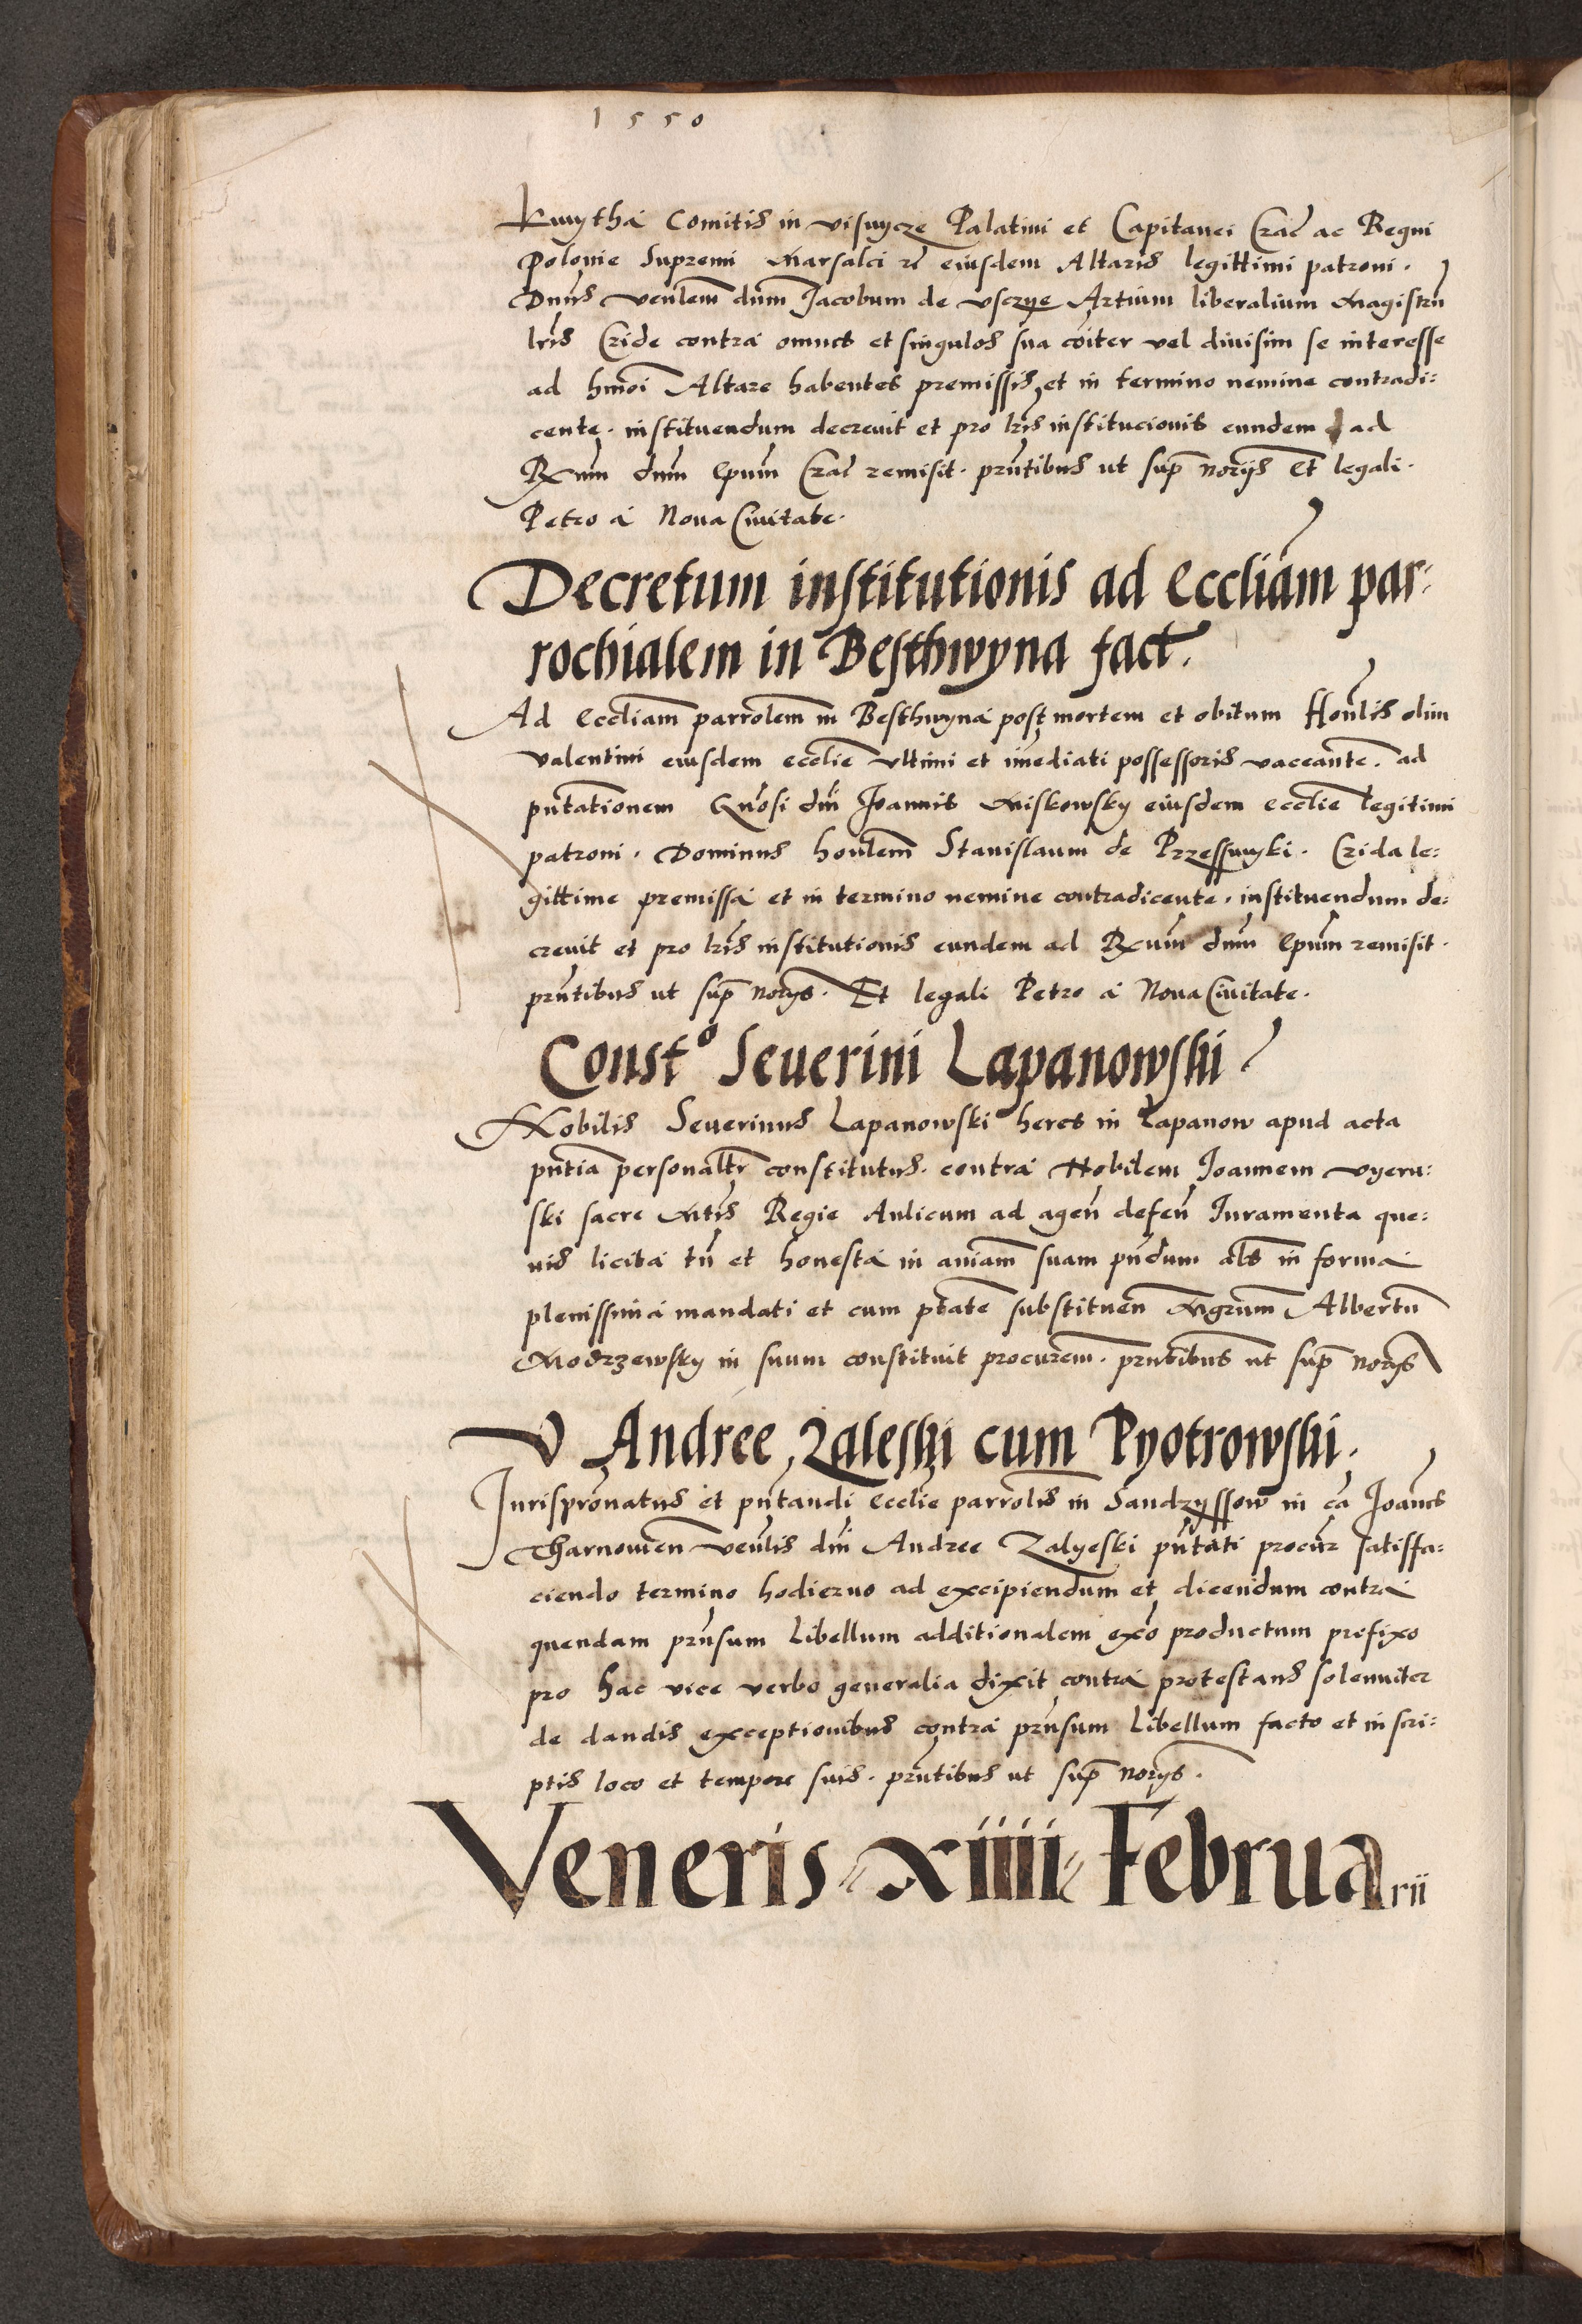 1550
Kmytha Comitis in Visnycze Palatini et Capitanei Crac̄ ac Regni
Polonie Supremi Marsalci rc̄ eiusdem Altaris legittimi patroni.
Dnūs venlem̄ dnm̄ Jacobum de Usczye Artium liberalium Magistrū
lrīs Cride contra omnes et singulos sua cōiter vel diuisim se interesse
ad hmōi Altare habentes premissis, et in termino nemine contradi:
cente. instituendum decreuit et pro lrīs institucionis eundem ad
Rx̄um dnm̄ Epūm Crac̄ remisit. prn̄tibus ut sup̄ norijs Et legali.
Petro a Noua Ciuitate.
Decretum institutionis ad Eccliām par:
rochialem in Besthwyna fact.
Ad Eccliam̄ parrolem̄ in Besthwyna post mortem et obitum Honl̄is olim
Valentini eiusdem ecclie̅ vltimi et im̄ediati possessoris vaccante̅. ad
pn̄tationem Gn̄osi dn̄i Joannis Miskowsky eiusdem ecclie̅ legitimi
patroni. Dominus honlem̄ Stanislaum de Przessnyki. Crida le:
gittime premissa et in termino nemine contradicente. instituendum de:
creuit et pro lrīs institutionis eundem ad Rx̄um dnm̄ Epūm remisit.
prn̄tibus ut sup̄ norijs. Et legali Petro a Noua Ciuitate.
Constº Seuerini Lapanowski
Nobilis Seuerinus Lapanowski heres in Lapanow apud acta
pn̄tia personaltr̄ constitutus. contra Nobilem Joannem Vyeru:
ski sacre Mtīs Regie Aulicum ad agen̄ defen̄ Juramenta que:
uis licita tn̄ et honesta in aniam̄ suam pn̄dum als̄ in forma
plenissima mandati et cum ptāte substituen̄ Mgrum̄ Albertū
Modrzewsky in suum constituit procurem̄. prn̄tibus ut sup̄ norijs
V Andree Zaleski cum Pyotrowski.
Jurispron̄atus et pn̄tandi Ecclie̅ parrolis̄ in Sandzyssow in cā Joan̄es
Tharnowen̄ Venl̄is dn̄i Andree Zalyeski pn̄tati procur̄ satisffa:
ciendo termino hodierno ad excipiendum et dicendum contra
quendam prn̄sum Libellum additionalem exō productum prefixo
pro hac vice verbo generalia dixit contra protestans solenniter
de dandis exceptionibus contra prn̄sum Libellum facto et in scri:
ptis loco et tempore suis. prn̄tibus ut sup̄ norijs.
Veneris xiiii Februarii